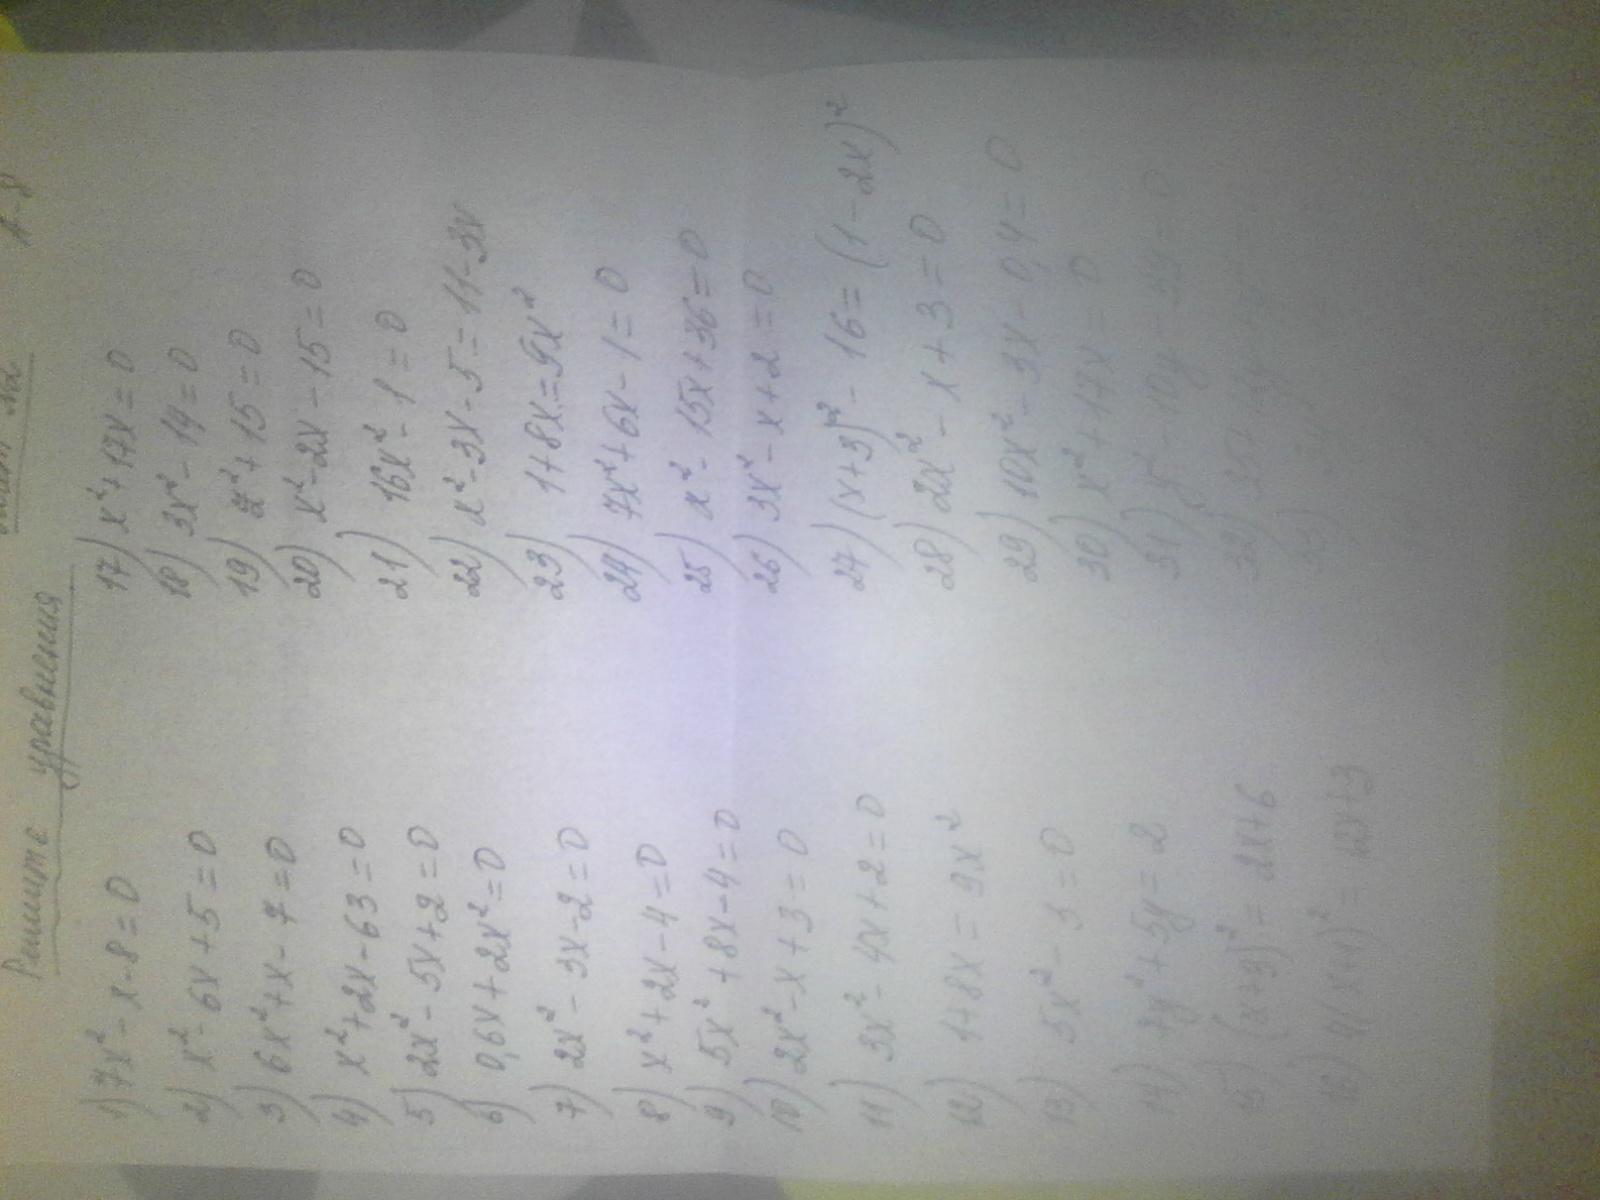 А-8
Решите уравнения
1) 7x² - x - 8 = 0
2) x² - 6x + 5 = 0
3) 6x² + x - 7 = 0
4) x² + 2x - 63 = 0
5) 2x² - 5x + 2 = 0
6) 0,6x + 2x² = 0
7) 2x² - 3x - 2 = 0
8) x² + 2x - 4 = 0
9) 5x² + 8x - 4 = 0
10) 2x² - x + 3 = 0
11) 3x² - 4x + 2 = 0
12) 1 + 8x = 9x²
13) 5x² - 3 = 0
14) 3y² + 5y = 2
15) (x+3)² = 2x + 6
16) 4(x+1)² = 2x + 3
17) x² + 17x = 0
18) 3x² - 14 = 0
19) x² + 15 = 0
20) x² - 2x - 15 = 0
21) 16x² - 1 = 0
22) x² - 3x - 5 = 11 - 3x
23) 1 + 8x = 9x²
24) 7x² + 6x - 1 = 0
25) x² - 15x + 36 = 0
26) 3x² - x + 2 = 0
27) (x+3)² - 16 = (1 - 2x)²
28) 2x² - x + 3 = 0
29) 10x² - 3x - 0,4 = 0
30) x² + 17x = 0
31) y² - 10y
32)
33)